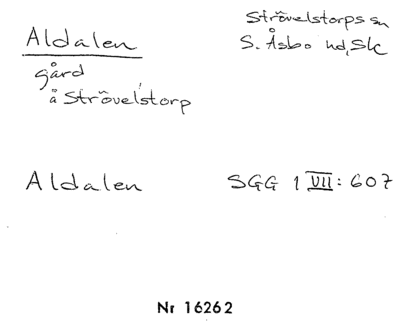 Aldalen
Strövelstorps sn
S. Åsbo hd, Sk
gård
å Strövelstorp
Aldalen
SGG 1 VII: 607
Nr 16262